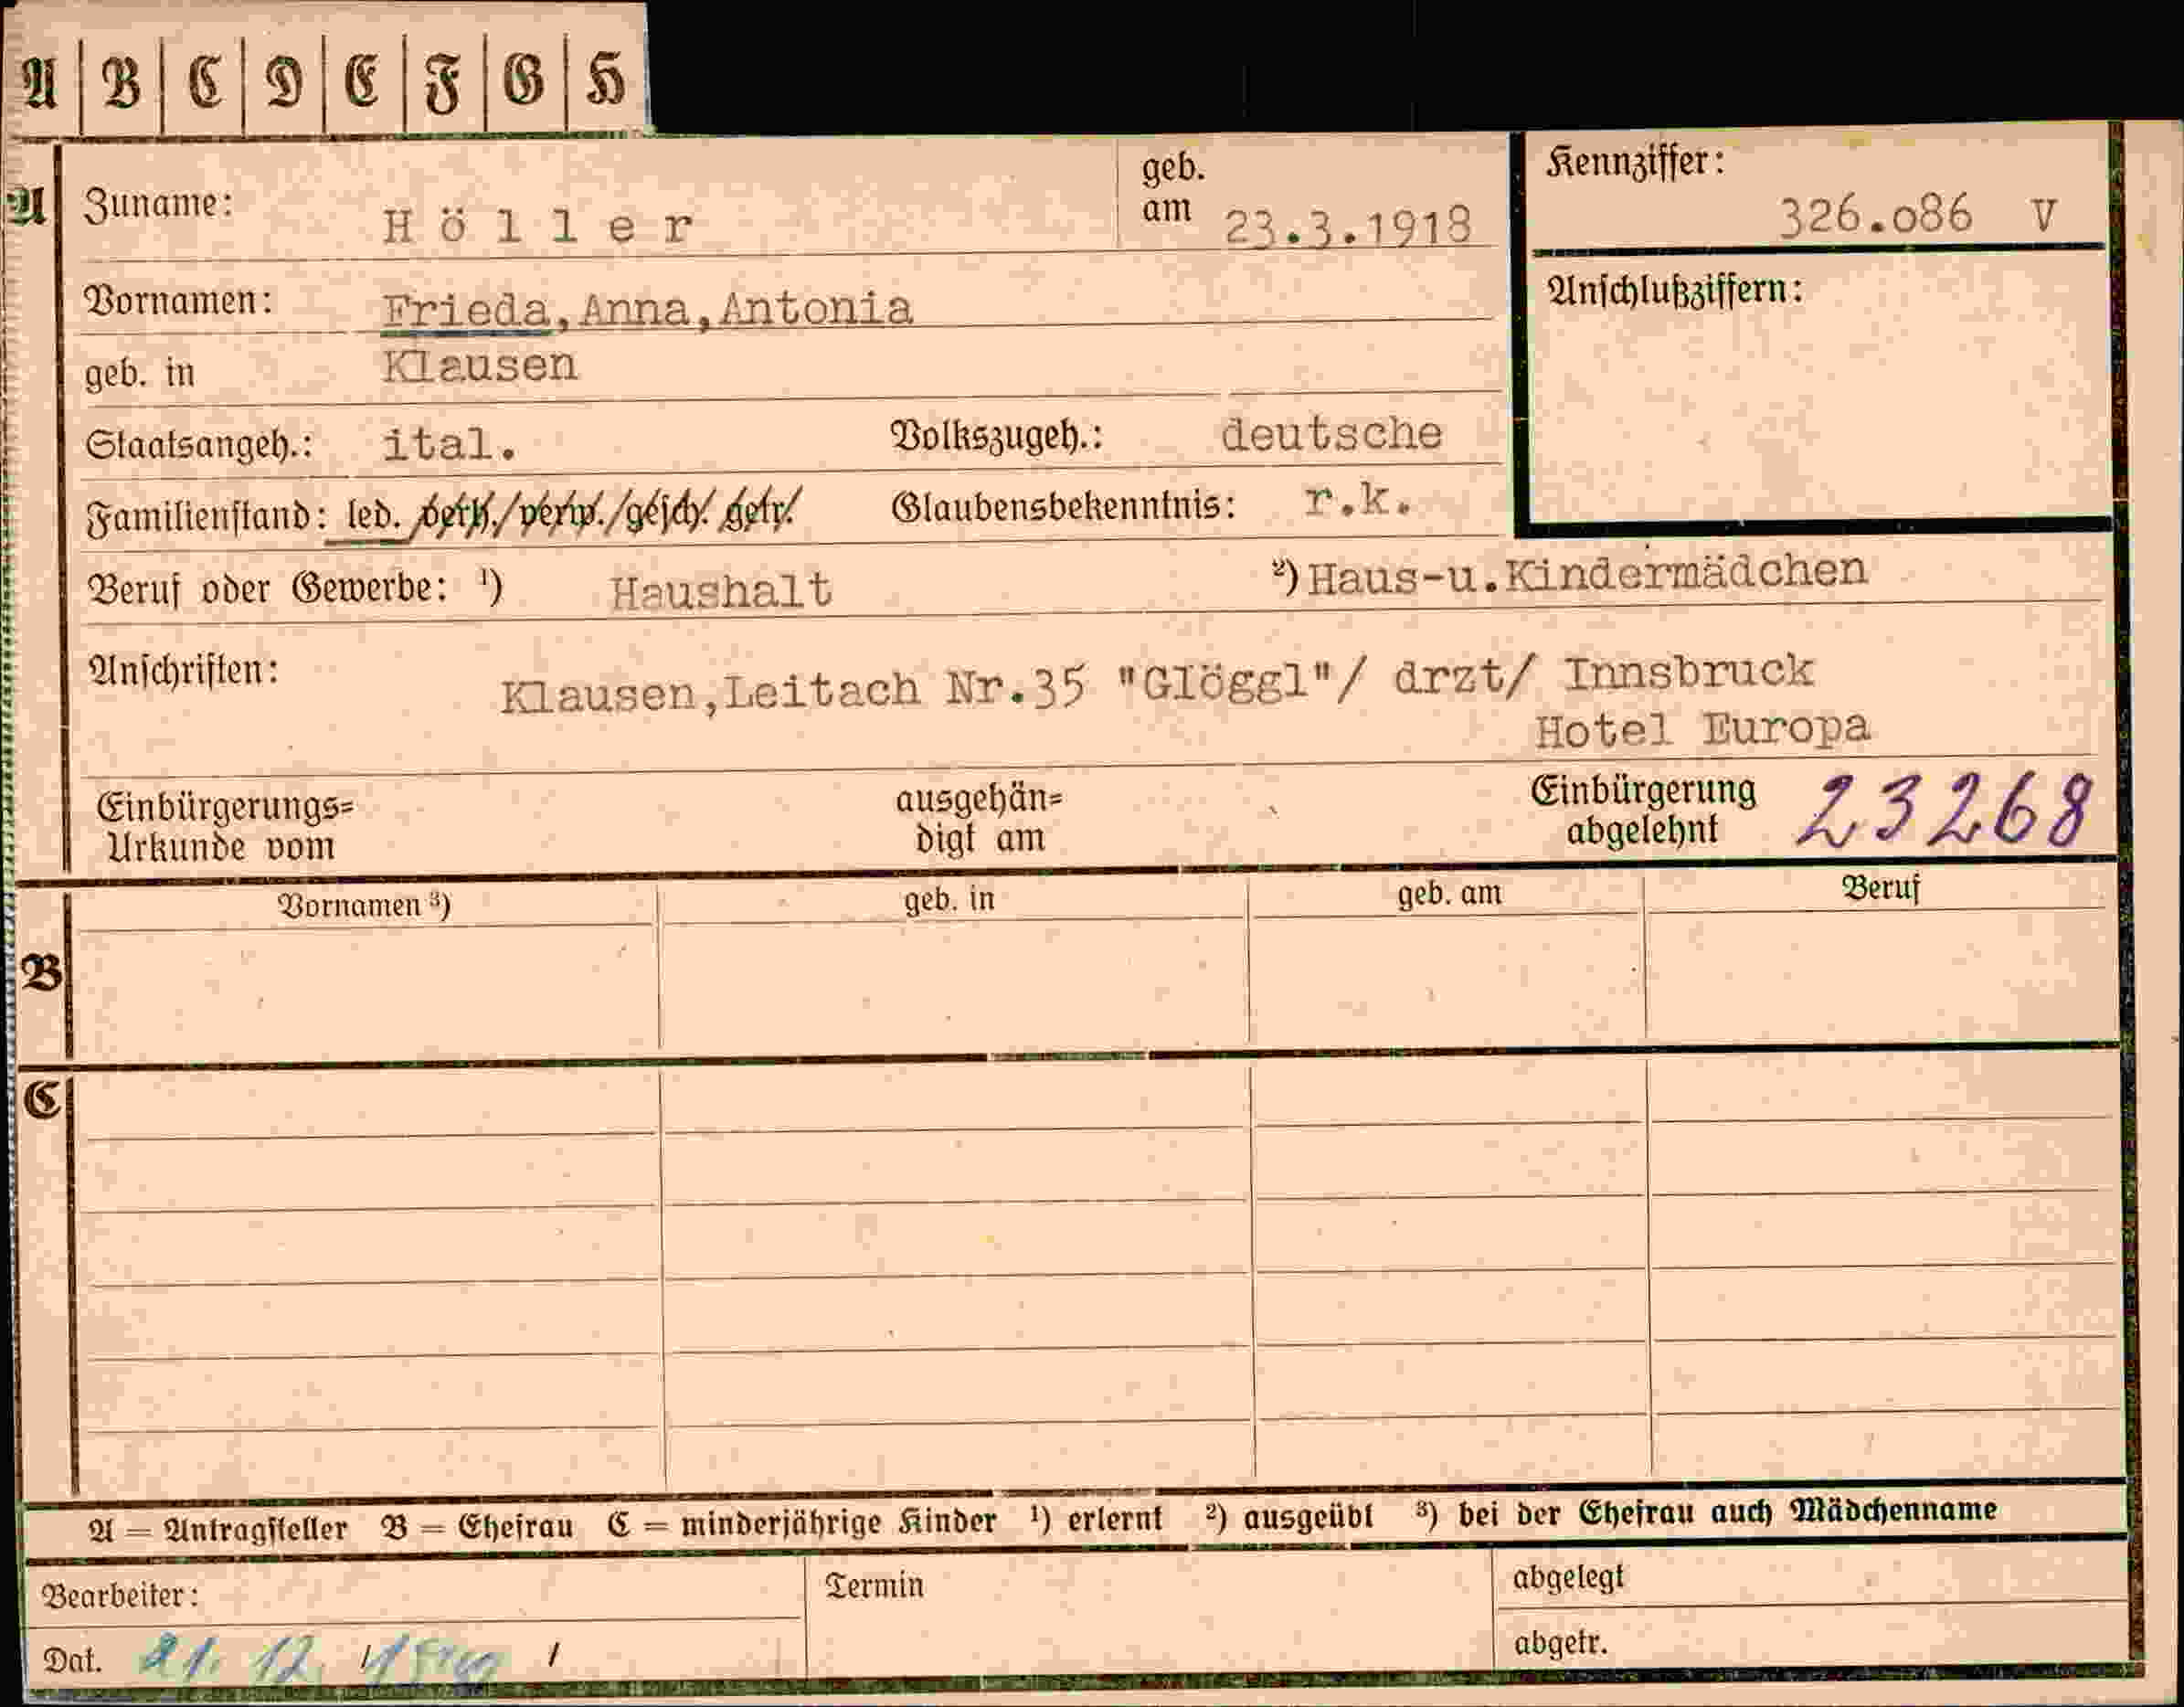 A B C D E F G H
A Zuname: Höller geb. am 23.3.1918 Kennziffer: 326.o86 V
Vornamen: Frieda,Anna,Antonia Anschlußziffern:
geb. in Klausen
Staatsangeh.: ital. Volkszugeh.: deutsche
Familienstand: led. verh./verw./gesch. getr. Glaubensbekenntnis: r.k.
Beruf oder Gewerbe: ¹) Haushalt ²) Haus-u.Kindermädchen
Anschriften: Klausen,Leitach Nr.35 "Glöggl"/ drzt/ Innsbruck
Hotel Europa
Einbürgerungs= ausgehän= Einbürgerung 23268
Urkunde vom digt am abgelehnt
Vornamen ³) geb. in geb. am Beruf
B
C
A = Antragsteller B = Ehefrau C = minderjährige Kinder ¹) erlernt ²) ausgeübt ³) bei der Ehefrau auch Mädchenname
Bearbeiter: Termin abgelegt
Dat. 21. 12. abgetr.